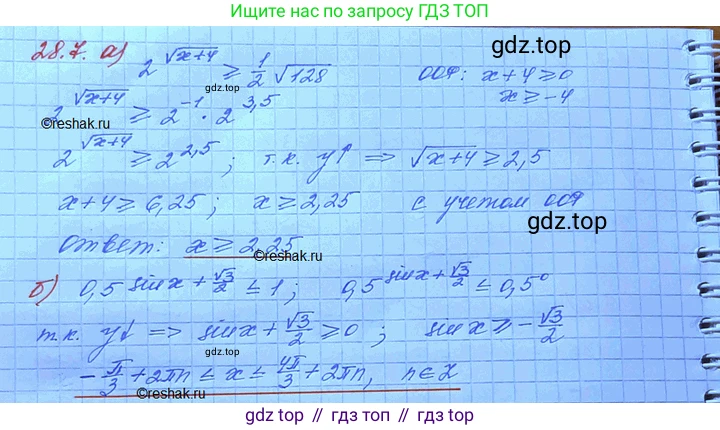 Ищите нас по запросу ГДЗ ТОП
gdz.top
28.7. а) 2^√(x+4) ≥ 1/2 √128 ООФ: x+4 ≥ 0
gdz.top
2^√(x+4) ≥ 2^-1 · 2^3,5 x ≥ -4
©reshak.ru
2^√(x+4) ≥ 2^2,5 ; т.к. y↑ ⇒ √(x+4) ≥ 2,5
x+4 ≥ 6,25 ; x ≥ 2,25 с учетом ООФ
gdz.top
Ответ: x ≥ 2,25
©reshak.ru
б) 0,5^(sin x + √3/2) ≤ 1 ; 0,5^(sin x + √3/2) ≤ 0,5^0
т.к. y↓ ⇒ sin x + √3/2 ≥ 0 ; sin x ≥ -√3/2
gdz.top
-π/3 + 2πn ≤ x ≤ 4π/3 + 2πn, n ∈ Z
©reshak.ru
gdz.top // гдз топ // gdz.top // гдз.топ